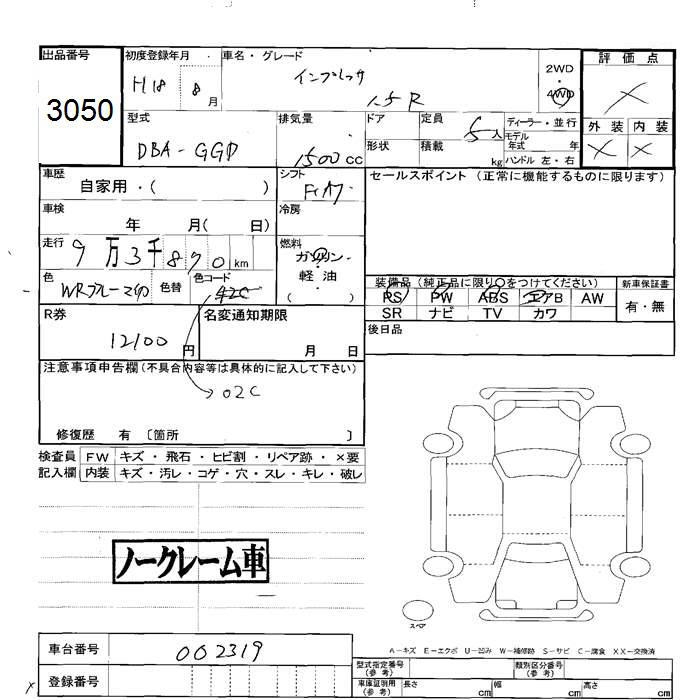 出品番号
3050
初度登録年月
H18 8月
車名・グレード
インプレッサ
1.5R
2WD
・
4WD
評価点
×
外装 内装
× ×
型式
DBA-GGD
排気量
1500cc
ドア
形状
定員 5人
積載 kg
ディーラー・並行
モデル
年式 年
ハンドル 左・右
車歴
自家用・( )
シフト
FAT
セールスポイント (正常に機能するものに限ります)
車検
年 月( 日)
冷房
走行
9万3千870km
燃料
ガソリン
軽油
( )
色
WRブルーマイカ
色替
色コード
42C
装備品 (純正品に限り○をつけてください)
PS PW ABS エアB AW
SR ナビ TV カワ
新車保証書
有・無
R券
12100円
名変通知期限
月 日
後日品
注意事項申告欄(不具合内容等は具体的に記入して下さい)
02C
修復歴 有 〔箇所 〕
検査員
記入欄
FW キズ・飛石・ヒビ割・リペア跡・×要
内装 キズ・汚レ・コゲ・穴・スレ・キレ・破レ
ノークレーム車
スペア
A-キズ E-エクボ U-凹み W-補修跡 S-サビ C-腐食 XX-交換済
車台番号
002319
登録番号
型式指定番号
(参考)
類別区分番号
(参考)
車庫証明用
(参考)
長さ cm 幅 cm 高さ cm